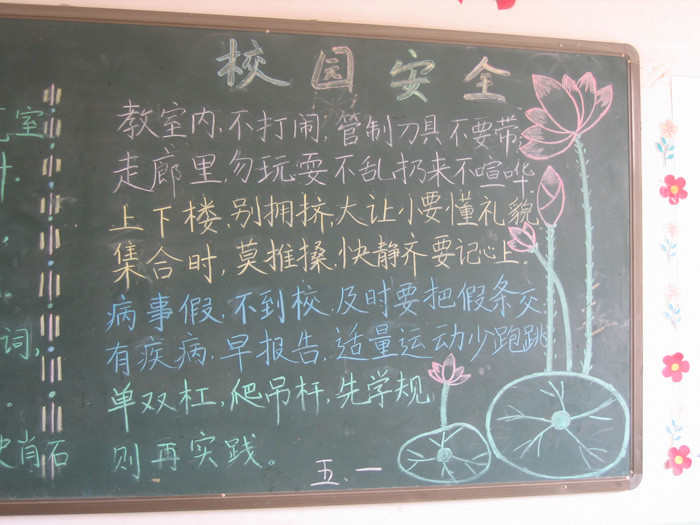 校园安全
教室内,不打闹,管制刀具不要带,
走廊里,勿玩耍,不乱扔来不喧哗.
上下楼,别拥挤,大让小要懂礼貌.
集合时,莫推搡.快静齐要记心上.
病事假.不到校.及时要把假条交.
有疾病.早报告.适量运动少跑跳.
单双杠,爬吊杆.先学规
则再实践。
五.一
室
词,
肖石